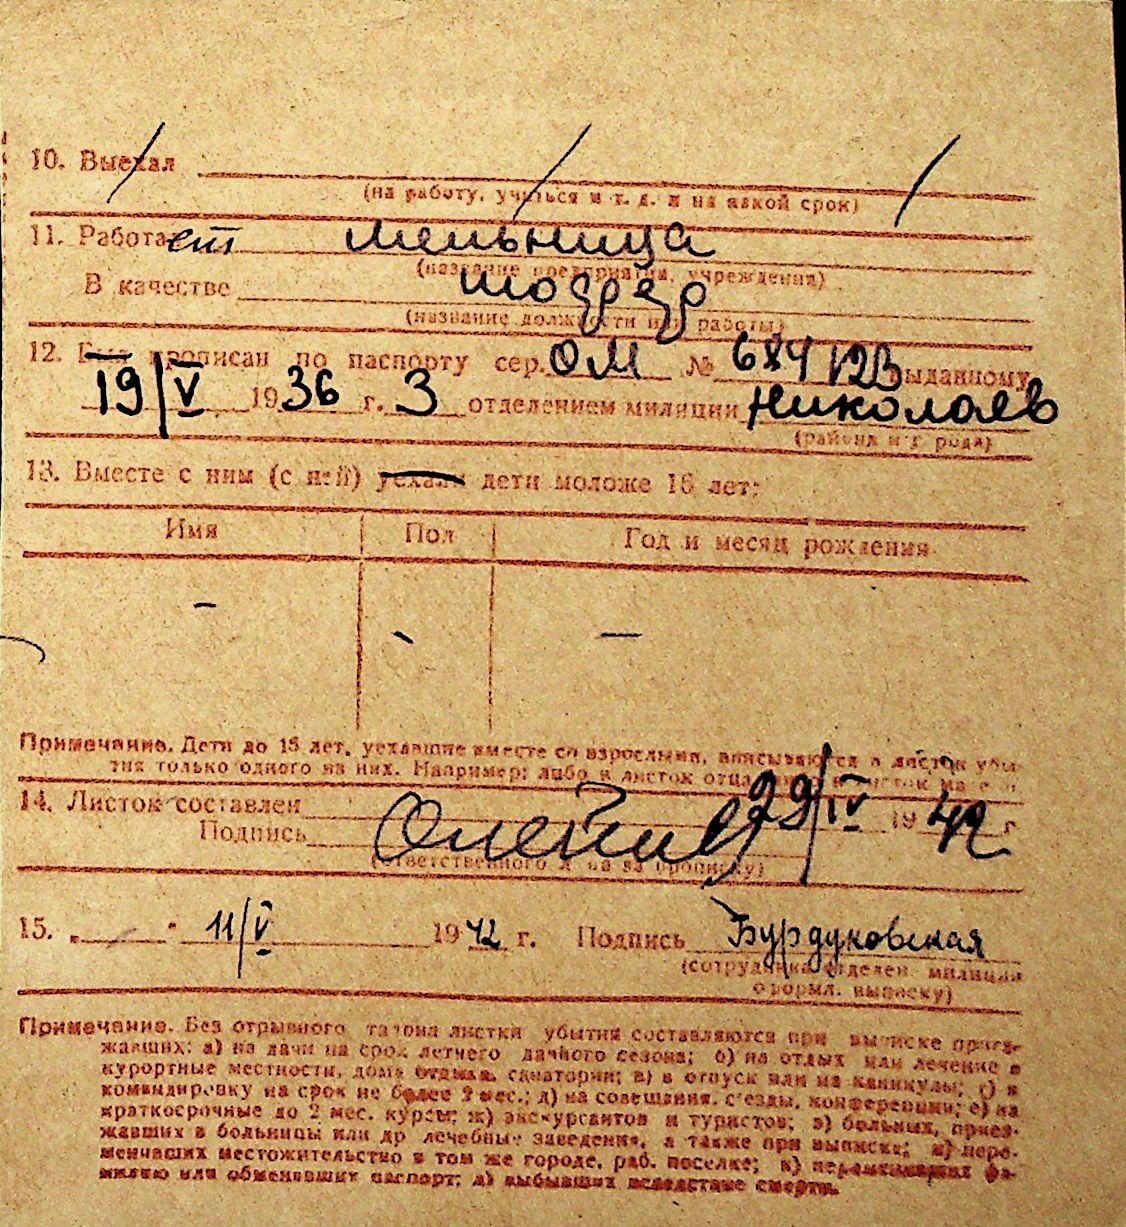 10. Выехал
(на работу, учиться и т. д. и на какой срок)
11. Работает мельница
(название предприятия, учреждения)
В качестве
(название должности или работы)
12. Был прописан по паспорту сер. ОМ № 684123 выданному
19/V 1936 г. 3 отделением милиции Николаев
(района и города)
13. Вместе с ним (с ней) уехали дети моложе 16 лет:
Имя Пол Год и месяц рождения
– – –
Примечание. Дети до 15 лет, уехавшие вместе со взрослыми, вписываются в листок убы-
тия только одного из них. Например: либо в листок отца
14. Листок составлен 29/IV 1942 г
Подпись
(ответственного за прописку)
15. „ " 11/V 1942 г. Подпись Бурдуковская
(сотрудника отделен. милиции
оформл. выписку)
Примечание. Без отрывного талона листки убытия составляются при выписке приез-
жавших: а) на дачи на срок летнего дачного сезона; б) на отдых или лечение в
курортные местности, дома отдыха, санатории; в) в отпуск или на каникулы; г) в
командировку на срок не более 2 мес.; д) на совещания, с'езды, конференции; е) на
краткосрочные до 2 мес. курсы; ж) экскурсантов и туристов; з) больных, приез-
жавших в больницы или др лечебные заведения, а также при выписке; и) пере-
менивших местожительство в том же городе, раб. поселке; к) переменивших фа-
милию или обменявших паспорт; л) выбывших вследствие смерти.